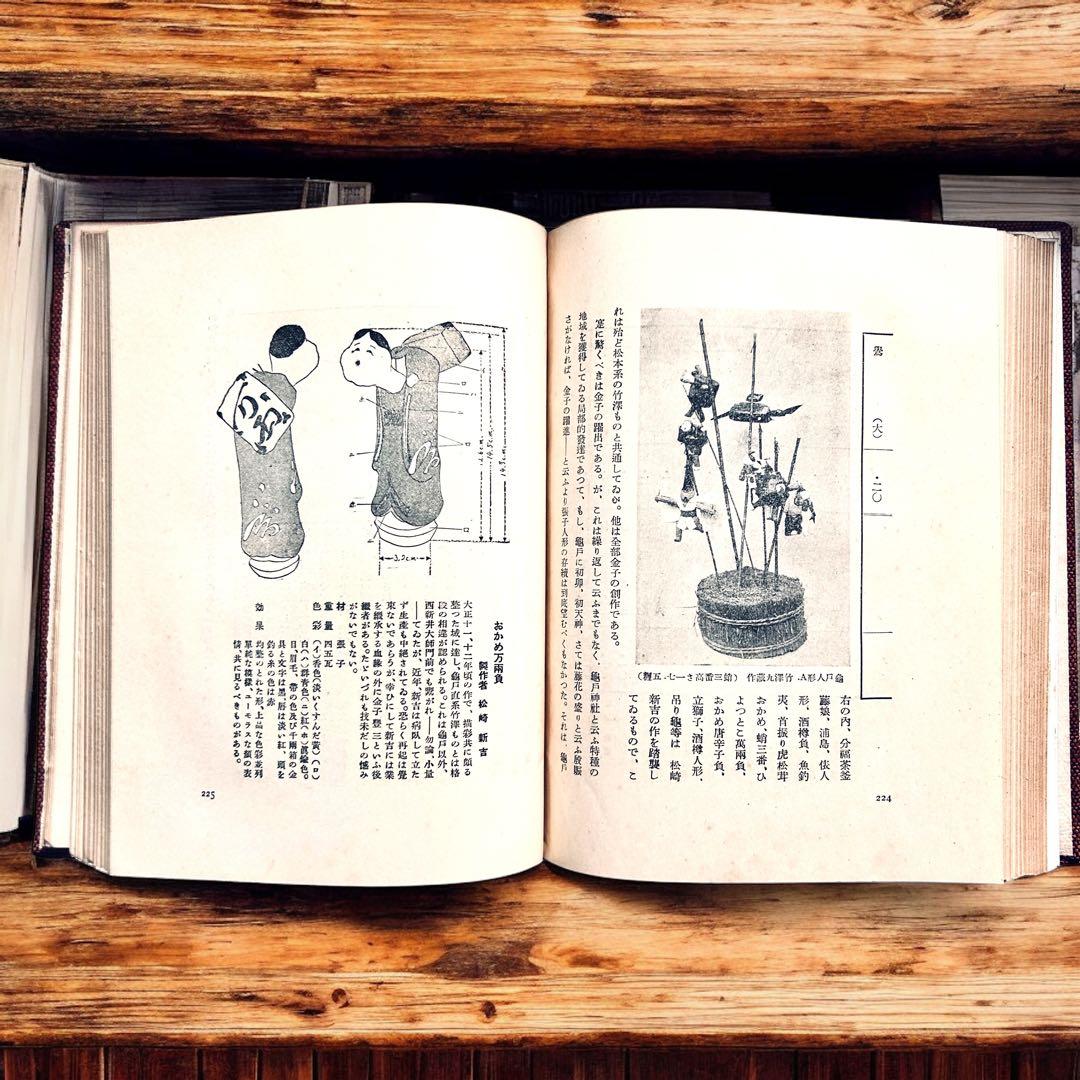 (大)
二・〇
龜戸人形A. 竹澤九藏作
右の内、分福茶釜
藤娘、浦島、俵人
形、酒樽負、魚釣
夷、首振り虎松茸
おかめ、蛸三番、ひ
よつとこ萬兩負、
おかめ唐辛子負、
立獅子、酒樽人形、
吊り龜等は 松崎
新吉の作を踏襲し
てゐるもので、こ
れは殆ど松本系の竹澤ものと共通してゐる。他は全部金子の創作である。
寔に驚くべきは金子の躍出である。が、これは繰り返して云ふまでもなく、龜戸神社と云ふ特種の
地域を獲得してゐる局部的發達であつて、もし、龜戸に初卯、初天神、さては藤花の盛りと云ふ放賑
さがなければ、金子の躍進——と云ふより張子人形の存續は到底望むべくもなかつた。それは、龜戸
224
14.5cm.
3.2cm
おかめ万兩負
製作者 松崎新吉
大正十一、十二年頃の作で、描彩共に頗る
整つた域に達し、龜戸直系竹澤ものとは格
段の相違が認められる。これは龜戸以外、
西新井大師門前でも鬻がれ——勿論、小量
——てゐたが、近年、新吉は病臥して立た
ず生產も中絕されてゐる。恐らく再起は覺
束ないであらうが、幸ひにして新吉には業
を繼承する血緣の外に金子豊三といふ後
繼者がある。たどいづれも技未だしの憾み
がないでもない。
材 張子
重量 四五瓦
色彩 (イ)香色(淡いくすんだ黄)(ロ)
白(ハ)群青色(ニ)紅(ホ)眞鍮色。
目、眉毛、帶の色及び千兩箱の金
具と文字は黑、唇は淡い紅、頭を
釣る糸の色は赤
効果 均整のとれた形、上品な色彩並列
單純な模樣、ユーモラスな顏の表
情、共に見るべきものがある。
225